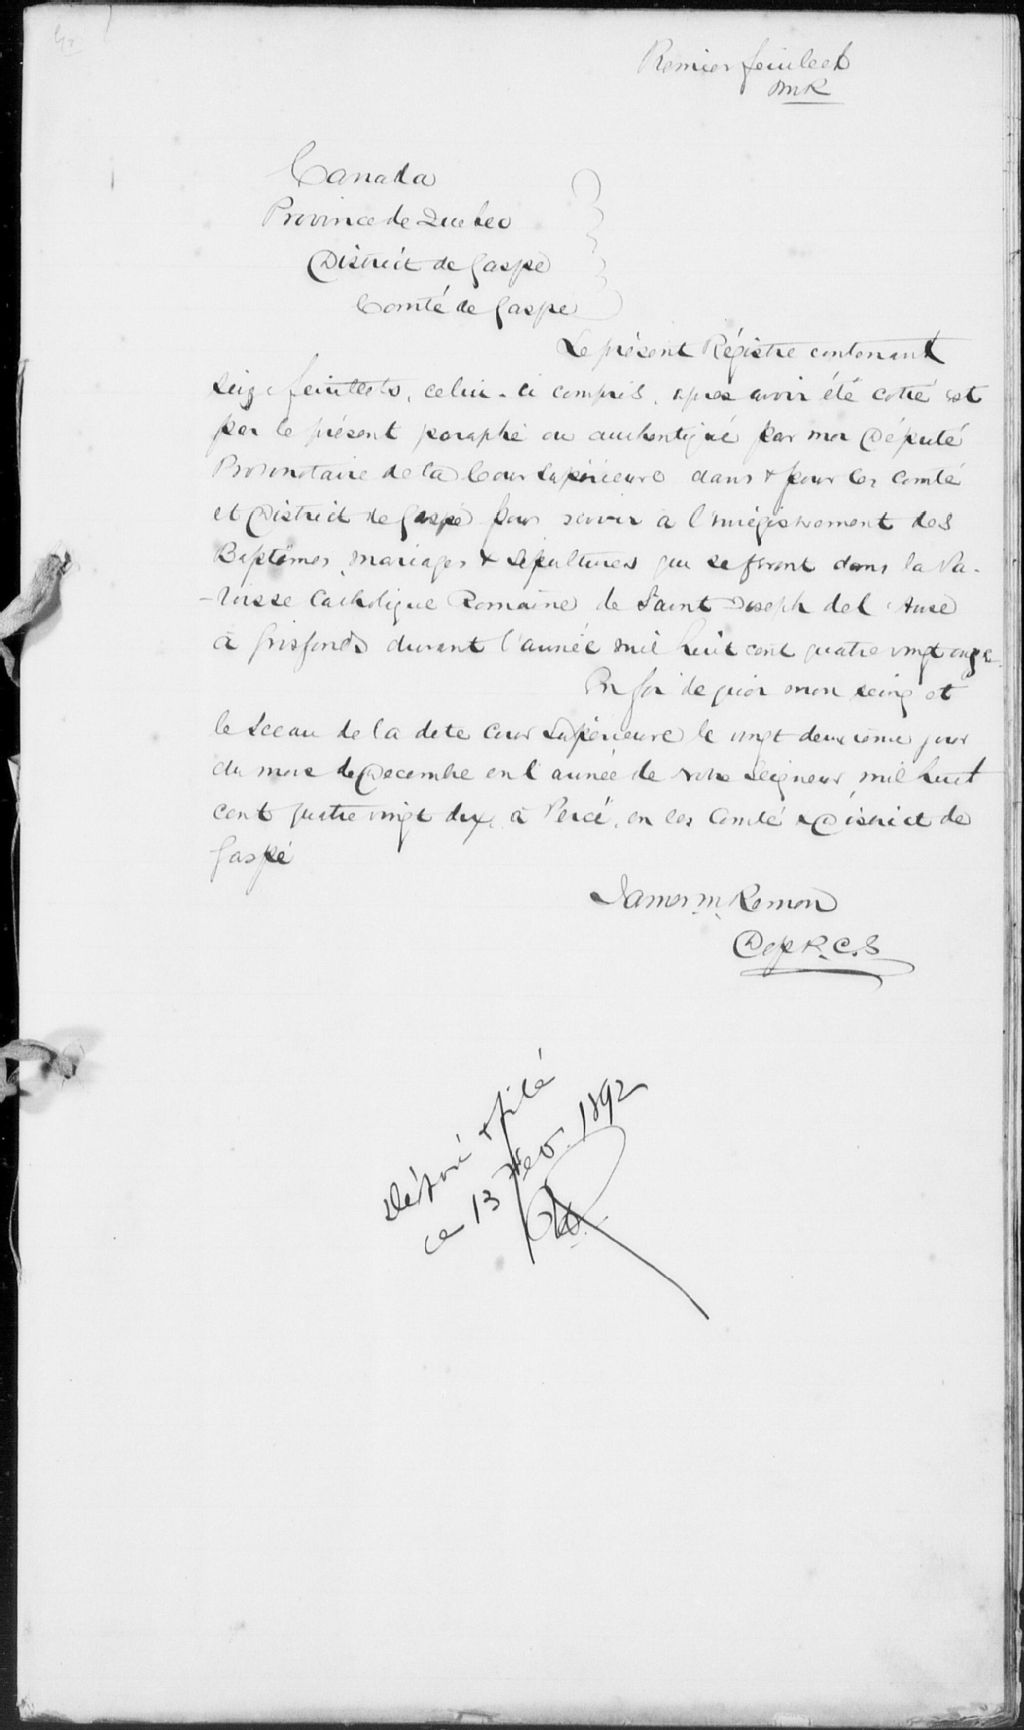 Premier feuillet
JMR
Canada
Province de Quebec
District de Gaspé
Comté de Gaspe
Le présent Régistre contenant
seize feuillets, celui-ci compris, apres avoir été cotté est
par le présent paraphé ou authentiqué par moi Député
Protonotaire de la Cour Supérieure dans & pour les Comté
et District de Gaspé pour servir à l'enrégistrement des
Baptêmes, mariages & sépultures qui se feront dans la Pa-
-roisse Catholique Romaine de Saint Joseph de l'Anse
à Grisfonds durant l'année mil huit cent quatre vingt onze.
En foi de quoi mon seing et
le Sceau de la dite Cour Supérieure le vingt deuxième jour
du mois de Decembre en l'année de notre Seigneur mil huit
cent quatre vingt dix, à Percé, en les Comté & District de
Gaspé
James M. Remon
Dep P. C. S
Déposé & filé
ce 13 Fev. 1892